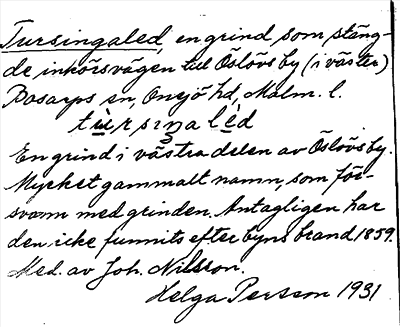 Tursingaled, en grind som stäng-
de inkörsvägen till Öslövs by (i väster)
Bosarps sn, Onsjö hd, Malm. l.
tùrsiŋalèd
En grind i västra delen av Öslövs by.
Mycket gammalt namn, som för-
svann med grinden. Antagligen har
den icke funnits efter byns brand 1859.
Med. av Joh. Nilsson.
Helga Persson 1931